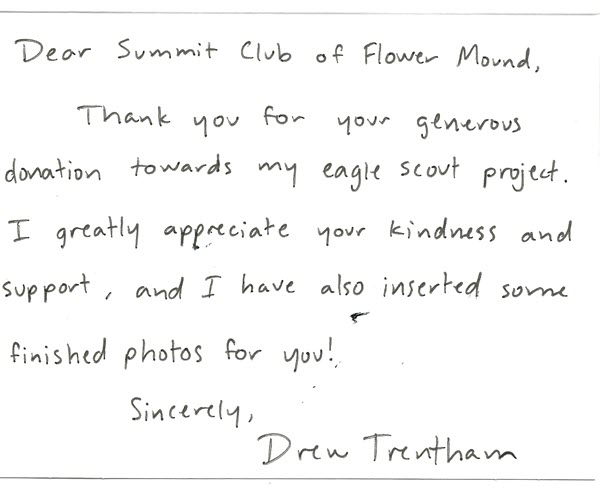 Dear Summit Club of Flower Mound,
Thank you for your generous
donation towards my eagle scout project.
I greatly appreciate your kindness and
support, and I have also inserted some
finished photos for you!
Sincerely,
Drew Trentham